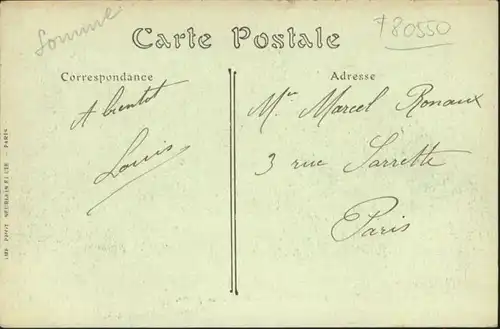 Somme
780550
Carte Postale
Correspondance
A bientot
Louis
Adresse
Mr Marcel Ronaux
3 rue Sarrette
Paris